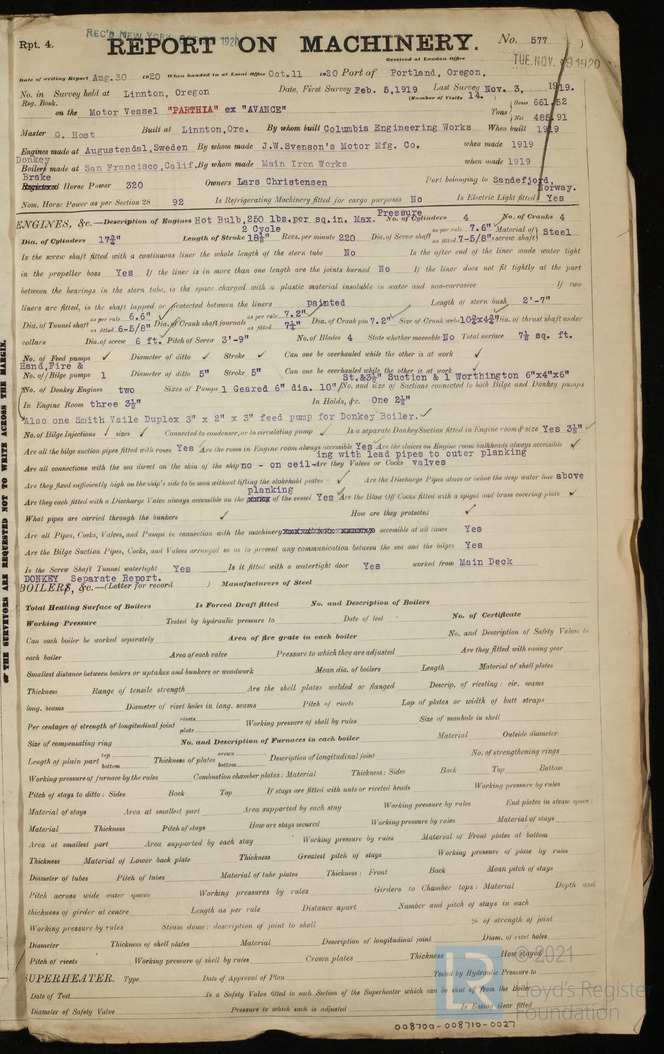 Rpt. 4.
REC'D NEW YORK OCT 1920
REPORT ON MACHINERY.
No. 577
Received at London Office
TUE. NOV. 1920
Date of writing Report Aug.30 1920 When handed in at Local Office Oct.11 1920 Port of Portland, Oregon,
No. in Survey held at Linnton, Oregon Date, First Survey Feb. 5,1919 Last Survey Nov. 3, 1919.
Reg. Book.
(Number of Visits 14.
on the Motor Vessel "PARTHIA" ex "AVANCE" Tons Gross 661.52 Net 485.91
Master G. Hoat Built at Linnton,Ore. By whom built Columbia Engineering Works When built 1919
Engines made at Augustendal,Sweden By whom made J.W.Svenson's Motor Mfg. Co. when made 1919
Donkey
Boilers made at San Francisco,Calif. By whom made Main Iron Works when made 1919
Brake
Registered Horse Power 320 Owners Lars Christensen Port belonging to Sandefjord, Norway.
Nom. Horse Power as per Section 28 92 Is Refrigerating Machinery fitted for cargo purposes No Is Electric Light fitted Yes
ENGINES, &c.—Description of Engines Hot Bulb,250 lbs.per sq.in. Max. Pressure No. of Cylinders 4 No. of Cranks 4
2 Cycle
Dia. of Cylinders 17¾" Length of Stroke 18½" Revs. per minute 220 Dia. of Screw shaft as per rule 7.6" as fitted 7-5/8" Material of screw shaft Steel
Is the screw shaft fitted with a continuous liner the whole length of the stern tube No Is the after end of the liner made water tight
in the propeller boss Yes If the liner is in more than one length are the joints burned No If the liner does not fit tightly at the part
between the bearings in the stern tube, is the space charged with a plastic material insoluble in water and non-corrosive If two
liners are fitted, is the shaft lapped or protected between the liners painted Length of stern bush 2'-7"
Dia. of Tunnel shaft as per rule 6.6" as fitted 6-5/8" Dia. of Crank shaft journals as per rule 7.2" as fitted 7¼" Dia. of Crank pin 7.2" Size of Crank webs 10¾x4¾" Dia. of thrust shaft under
collars Dia. of screw 6 ft. Pitch of Screw 3'-9" No. of Blades 4 State whether moveable No Total surface 7½ sq. ft.
No. of Feed pumps ✓ Diameter of ditto ✓ Stroke ✓ Can one be overhauled while the other is at work ✓
Hand,Fire &
No. of Bilge pumps 1 Diameter of ditto 5" Stroke 5" Can one be overhauled while the other is at work ✓
St.&3½" Suction & 1 Worthington 6"x4"x6"
No. of Donkey Engines two Sizes of Pumps 1 Geared 6" dia. 10" No. and size of Suctions connected to both Bilge and Donkey pumps
In Engine Room three 3½" In Holds, &c. One 2½"
Also one Smith Vaile Duplex 3" x 2" x 3" feed pump for Donkey Boiler. ✓
No. of Bilge Injections ✓ sizes ✓ Connected to condenser, or to circulating pump ✓ Is a separate Donkey Suction fitted in Engine room & size Yes 3½"
Are all the bilge suction pipes fitted with roses Yes Are the roses in Engine room always accessible Yes Are the sluices on Engine room bulkheads always accessible ✓
ing with lead pipes to outer planking
Are all connections with the sea direct on the skin of the ship no - on ceil- Are they Valves or Cocks valves
Are they fixed sufficiently high on the ship's side to be seen without lifting the stokehold plates ✓ Are the Discharge Pipes above or below the deep water line above
planking
Are they each fitted with a Discharge Valve always accessible on the of the vessel Yes Are the Blow Off Cocks fitted with a spigot and brass covering plate ✓
What pipes are carried through the bunkers ✓ How are they protected ✓
Are all Pipes, Cocks, Valves, and Pumps in connection with the machinery accessible at all times Yes
Are the Bilge Suction Pipes, Cocks, and Valves arranged so as to prevent any communication between the sea and the bilges Yes
Is the Screw Shaft Tunnel watertight Yes Is it fitted with a watertight door Yes worked from Main Deck
DONKEY Separate Report.
BOILERS, &c.—(Letter for record ) Manufacturers of Steel
Total Heating Surface of Boilers Is Forced Draft fitted No. and Description of Boilers
Working Pressure Tested by hydraulic pressure to Date of test No. of Certificate
Can each boiler be worked separately Area of fire grate in each boiler No. and Description of Safety Valves to
each boiler Area of each valve Pressure to which they are adjusted Are they fitted with easing gear
Smallest distance between boilers or uptakes and bunkers or woodwork Mean dia. of boilers Length Material of shell plates
Thickness Range of tensile strength Are the shell plates welded or flanged Descrip. of riveting: cir. seams
long. seams Diameter of rivet holes in long. seams Pitch of rivets Lap of plates or width of butt straps
Per centages of strength of longitudinal joint rivets plate Working pressure of shell by rules Size of manhole in shell
Size of compensating ring No. and Description of Furnaces in each boiler Material Outside diameter
Length of plain part top bottom Thickness of plates crown bottom Description of longitudinal joint No. of strengthening rings
Working pressure of furnace by the rules Combustion chamber plates: Material Thickness: Sides Back Top Bottom
Pitch of stays to ditto: Sides Back Top If stays are fitted with nuts or riveted heads Working pressure by rules
Material of stays Area at smallest part Area supported by each stay Working pressure by rules End plates in steam space:
Material Thickness Pitch of stays How are stays secured Working pressure by rules Material of stays
Area at smallest part Area supported by each stay Working pressure by rules Material of Front plates at bottom
Thickness Material of Lower back plate Thickness Greatest pitch of stays Working pressure of plate by rules
Diameter of tubes Pitch of tubes Material of tube plates Thickness: Front Back Mean pitch of stays
Pitch across wide water spaces Working pressures by rules Girders to Chamber tops: Material Depth and
thickness of girder at centre Length as per rule Distance apart Number and pitch of stays in each
Working pressure by rules Steam dome: description of joint to shell % of strength of joint
Diameter Thickness of shell plates Material Description of longitudinal joint Diam. of rivet holes
Pitch of rivets Working pressure of shell by rules Crown plates Thickness How stayed
SUPERHEATER. Type Date of Approval of Plan Tested by Hydraulic Pressure to
Date of Test Is a Safety Valve fitted to each Section of the Superheater which can be shut off from the Boiler
Diameter of Safety Valve Pressure to which each is adjusted Is Easing Gear fitted
008700-008710-0027
OF THE SURVEYORS ARE REQUESTED NOT TO WRITE ACROSS THE MARGIN.
© 2021
LR
Lloyd's Register
Foundation